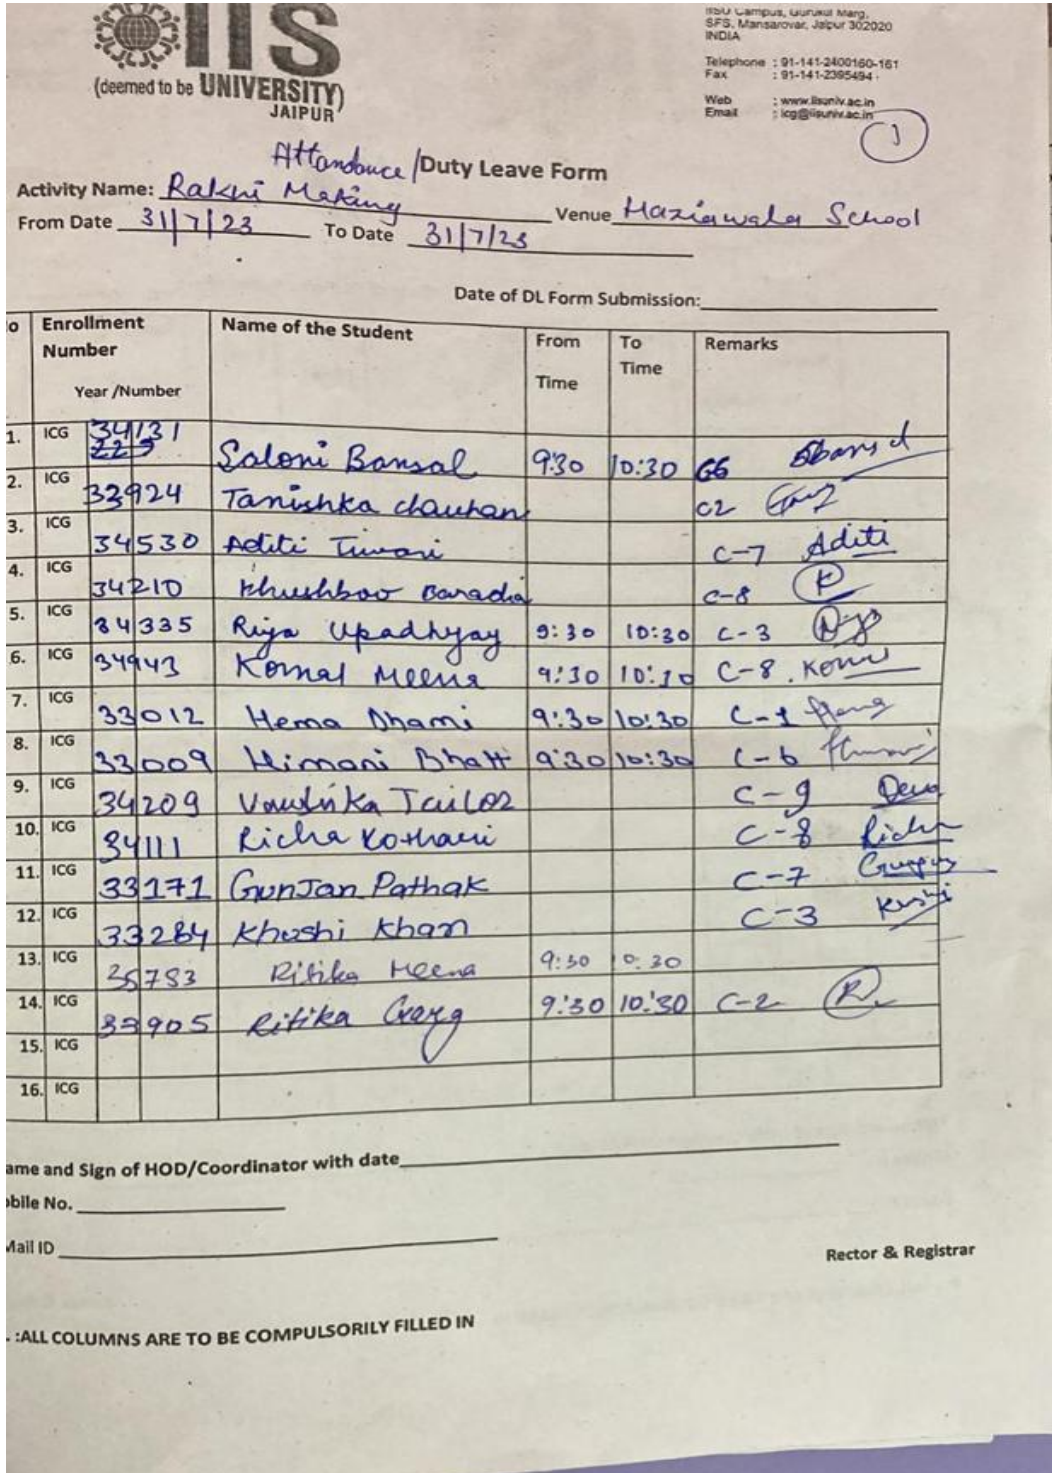 IIS
(deemed to be UNIVERSITY)
JAIPUR
IISU Campus, Gurukul Marg,
SFS, Mansarovar, Jaipur 302020
INDIA
Telephone : 91-141-2400160-161
Fax : 91-141-2395494
Web : www.iisuniv.ac.in
Email : icg@iisuniv.ac.in
1
Attandance /Duty Leave Form
Activity Name: Rakhi Making Venue Haziawala School
From Date 31/7/23 To Date 31/7/23
Date of DL Form Submission:
o Enrollment Number Year /Number Name of the Student From Time To Time Remarks
1. ICG 34131 Saloni Bansal 9:30 10:30 G6
2. ICG 33924 Tanishka chauhan C2
3. ICG 34530 Aditi Tiwari C-7 Aditi
4. ICG 34210 Khushboo Baradia C-8 K
5. ICG 34335 Riya Upadhyay 9:30 10:30 C-3
6. ICG 34943 Komal Meena 9:30 10:30 C-8
7. ICG 33012 Hema Dhami 9:30 10:30 C-1
8. ICG 33009 Himani Bhatt 9:30 10:30 C-6
9. ICG 34209 Tailor C-9
10. ICG 34111 Richa Kothari C-8 Richa
11. ICG 33171 GunJan Pathak C-7
12. ICG 33284 Khushi Khan C-3
13. ICG 35783 Ritika Meena 9:30 10:30
14. ICG 33905 Ritika Garg 9:30 10:30 C-2 R
15. ICG
16. ICG
ame and Sign of HOD/Coordinator with date
obile No.
Mail ID
Rector & Registrar
. :ALL COLUMNS ARE TO BE COMPULSORILY FILLED IN